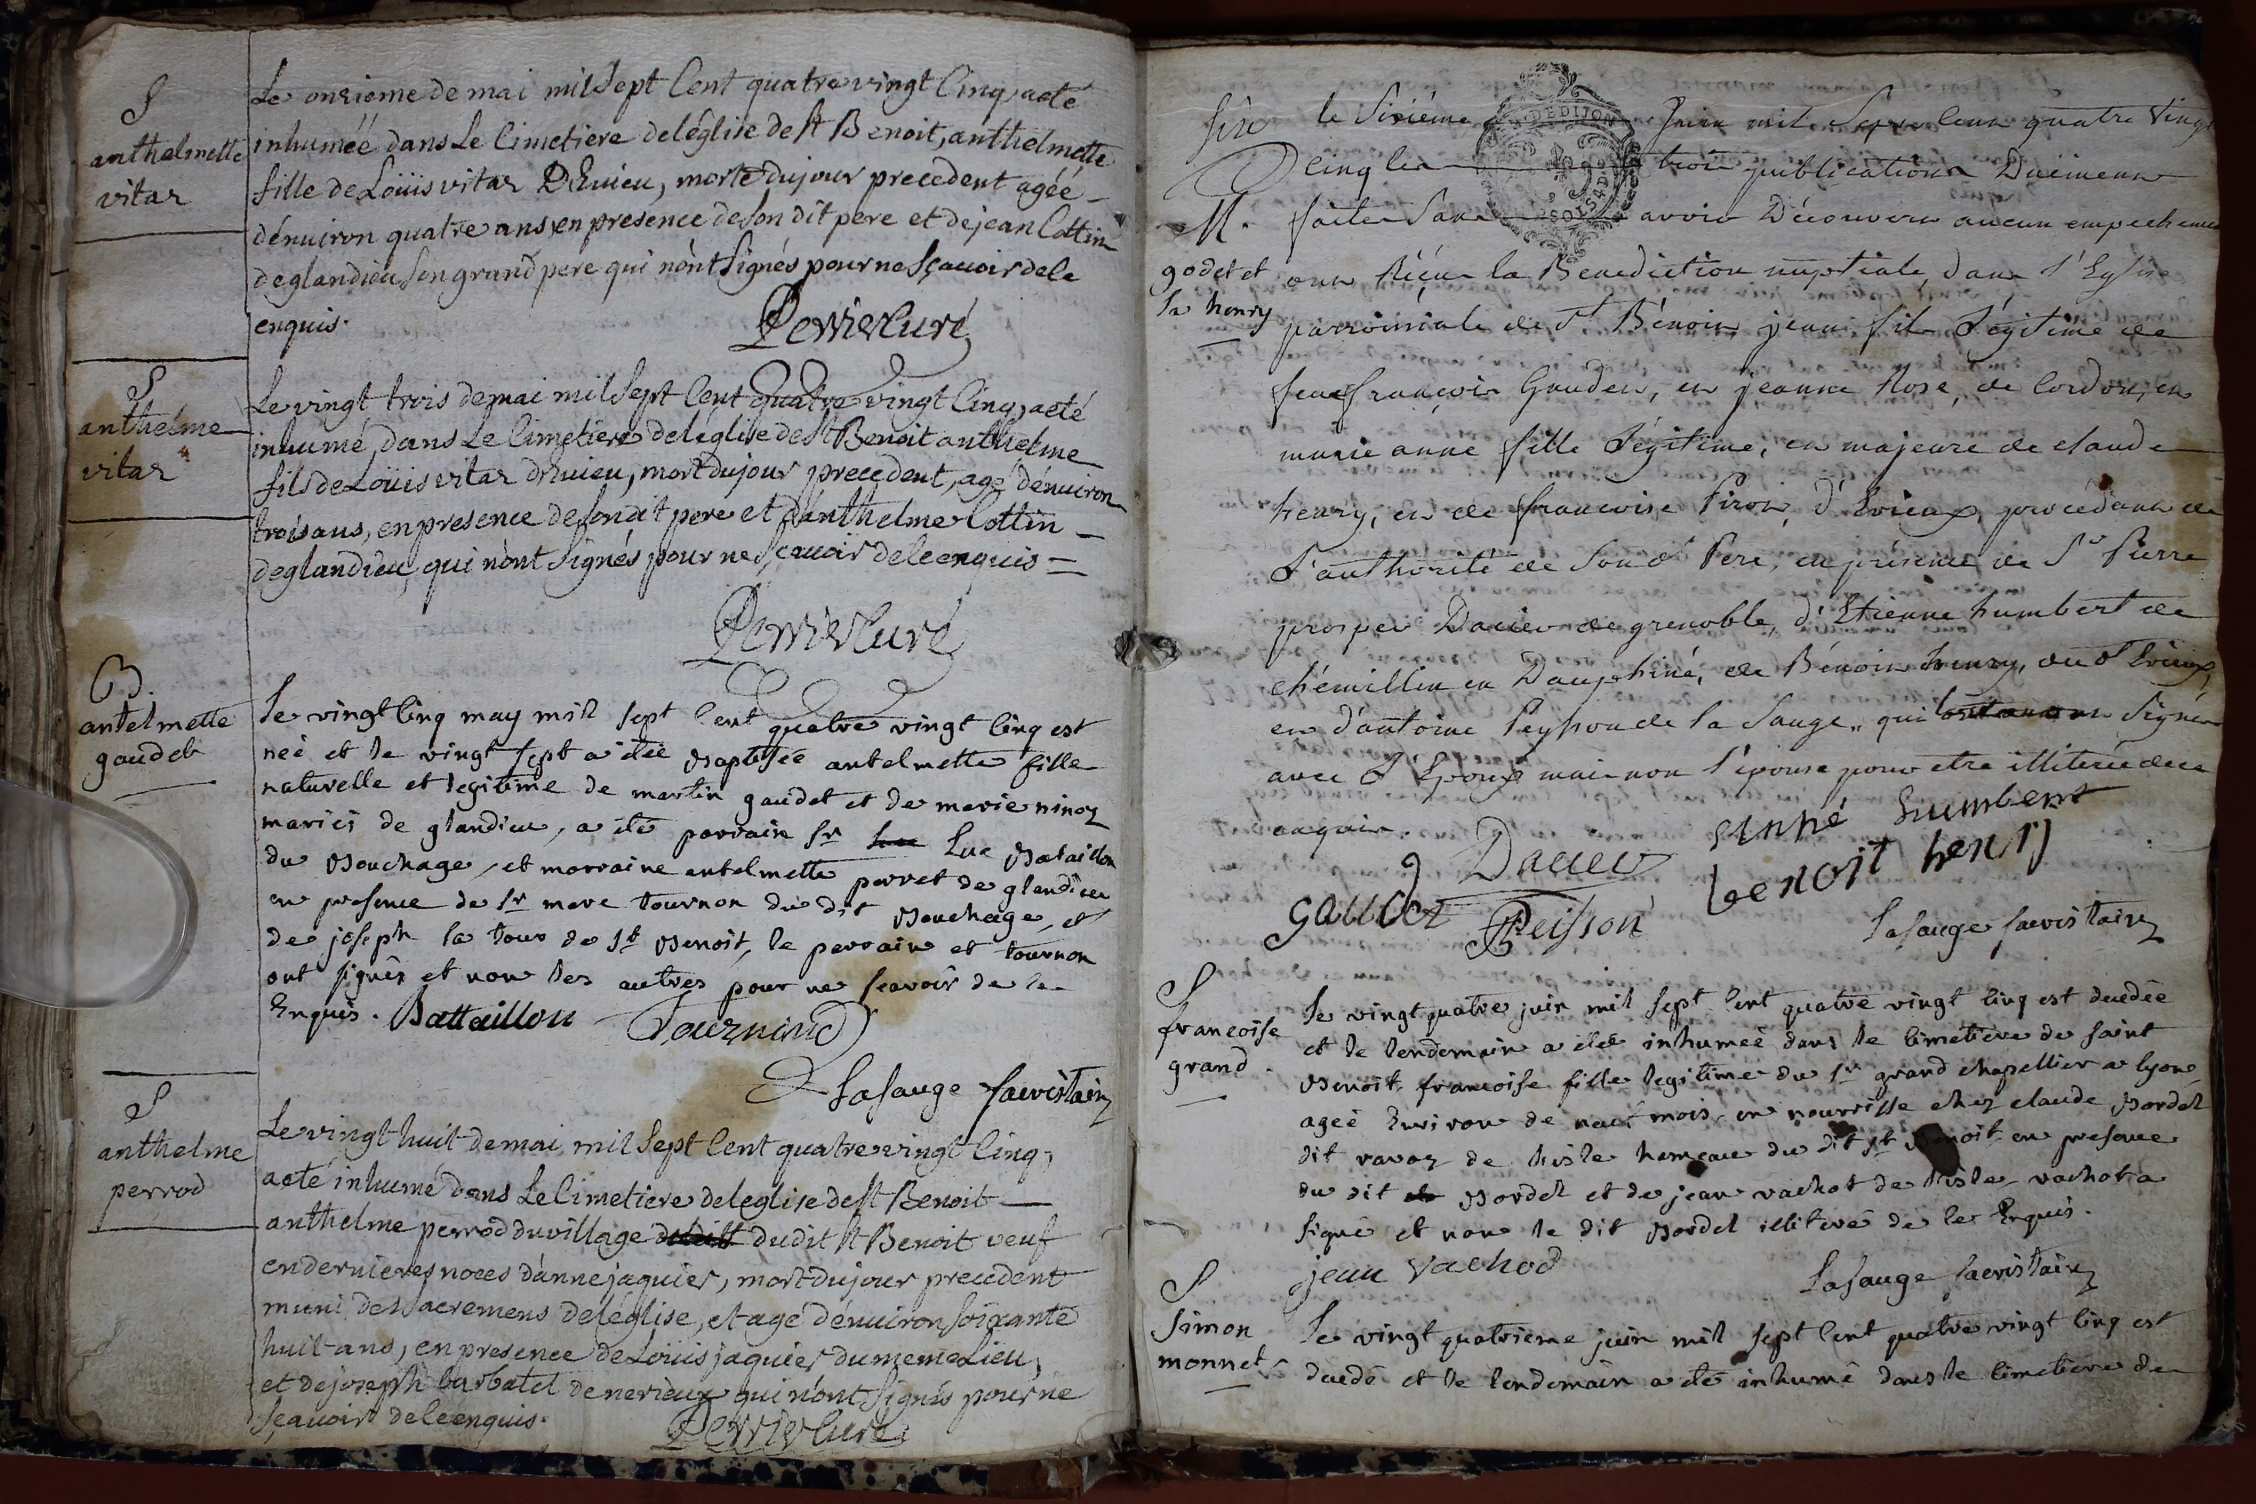 S
anthelmette
vitar
Le onzieme de mai mil sept Cent quatre vingt Cinq, a eté
inhumée dans Le Cimetiere de l'église de St Benoit, anthelmette
fille de Loüis vitar D'Evieu, morte du jour precedent agée
d'environ quatre ans, en presence de son dit pere et de jean Cottin
de glandieu son grand pere qui n'ont signés pour ne sçavoir de ce
enquis.
Perrier Curé
S
anthelme
vitar
Le vingt trois de mai mil sept Cent quatre vingt Cinq, a eté
inhumé, dans Le Cimetiere de l'église de St Benoit anthelme
fils de Loüis vitar d'Evieu, mort du jour precedent, agé d'environ
trois ans, en presence de son dit pere et d'anthelme Cottin
de glandieu, qui n'ont signés pour ne sçavoir de ce enquis =
Perrier Curé
B.
antelmette
gaudet
Le vingt Cinq may mil sept Cent quatre vingt Cinq est
neé et le vingt sept a été Baptisée antelmette fille
naturelle et legitime de martin gaudet et de marie ninoz
mariés de glandieu, a été parrain Sr Luc Bataillon
du Bouchage, et marraine antelmette perret de glandieu
en presence de Sr marc tournon du dit Bouchage, et
de joseph la tour de St Benoit, le parrain et tournon
ont signés et non les autres pour ne scavoir de ce
Enquis. Battaillon
Lasauge sacristain
S
anthelme
perrod
Le vingt huit de mai mil sept Cent quatre vingt Cinq,
a eté inhumé dans Le Cimetiere de l'eglise de St Benoit
anthelme perrod du village du dit St Benoit veuf
en dernieres noces d'anne jaquier, mort du jour precedent
muni des sacremens de l'église, et agé d'environ soixante
huit ans, en presence de Loüis jaquier du meme Lieu,
et de joseph barbatel de nerieux qui n'ont signés pour ne
sçavoir de ce enquis.
Perrier Curé
M.
godet et
la henry
le Sixiéme Juin mil Sept Cent quatre Vingt
Cinq les trois publications Duëment
faites Sans avoir Découvert aucun empechement
ont Réçu la Bénédiction nuptiale, dans l'Eglise
parroissiale de St Bénoit, jean fils Légitime de
feu françois Gaudet, et jeanne Rose, de Cordon, et
marie anne fille Légitime, et majeure de claude
henry, et de francoise Piron, d'Evieux, procédant de
L'authorité de Son d. Pere, en présence de Sr Pierre
prosper Dacier de grenoble, d'Etienne humbert de
chémillin en Dauphiné, de Bénoit henry, du d. Evieux,
et d'antoine Peysson de la Sauge, qui ont Signés
avec L'Epoux mais non l'épouse pour etre illiterée de ce
enquis.
Dacier
etinné humbert
benoit henry
gaudet
Peisson
Lasauge sacristain
S
francoise
grand.
Le vingt quatre juin mil sept Cent quatre vingt Cinq est decedée
et le lendemain a eté inhumeé dans le Cimetiere de saint
Benoit francoise fille legitime du Sr grand chapellier a lyon
ageé Environ de neuf mois, en nourrisse chez claude Bordel
dit ravaz de lisle hameau du dit St Benoit en presence
du dit Bordel et de jean vachot de lisle, vachot a
signé et non le dit Bordel illiteré de ce Enquis.
jean vachod
Lasauge sacristain
S
simon
monnet
Le vingt quatrieme juin mil sept Cent quatre vingt Cinq est
decedé et le lendemain a eté inhumé dans le Cimetiere de